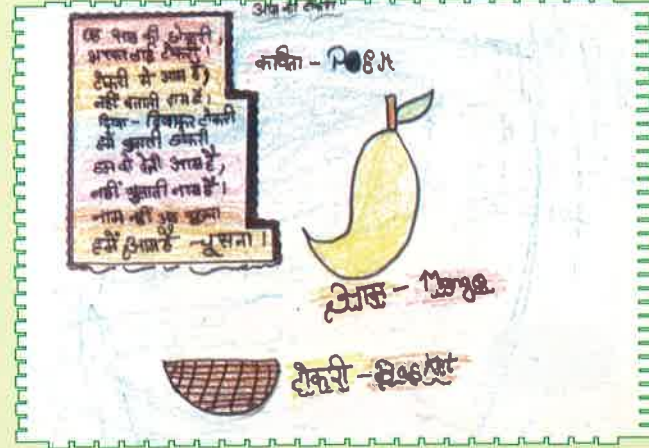 आम की टोकरी
छह साल की छोकरी,
भरकर लाई टोकरी।
टोकरी में आम है,
नहीं बताती दाम है।
दिखा - दिखाकर टोकरी
हमें बुलाती छोकरी
हम को देती आम है,
नहीं बुलाती नाम है।
नाम नहीं अब
हमें आम है चूसना।
कविता -
आम - Mango
टोकरी - Basket